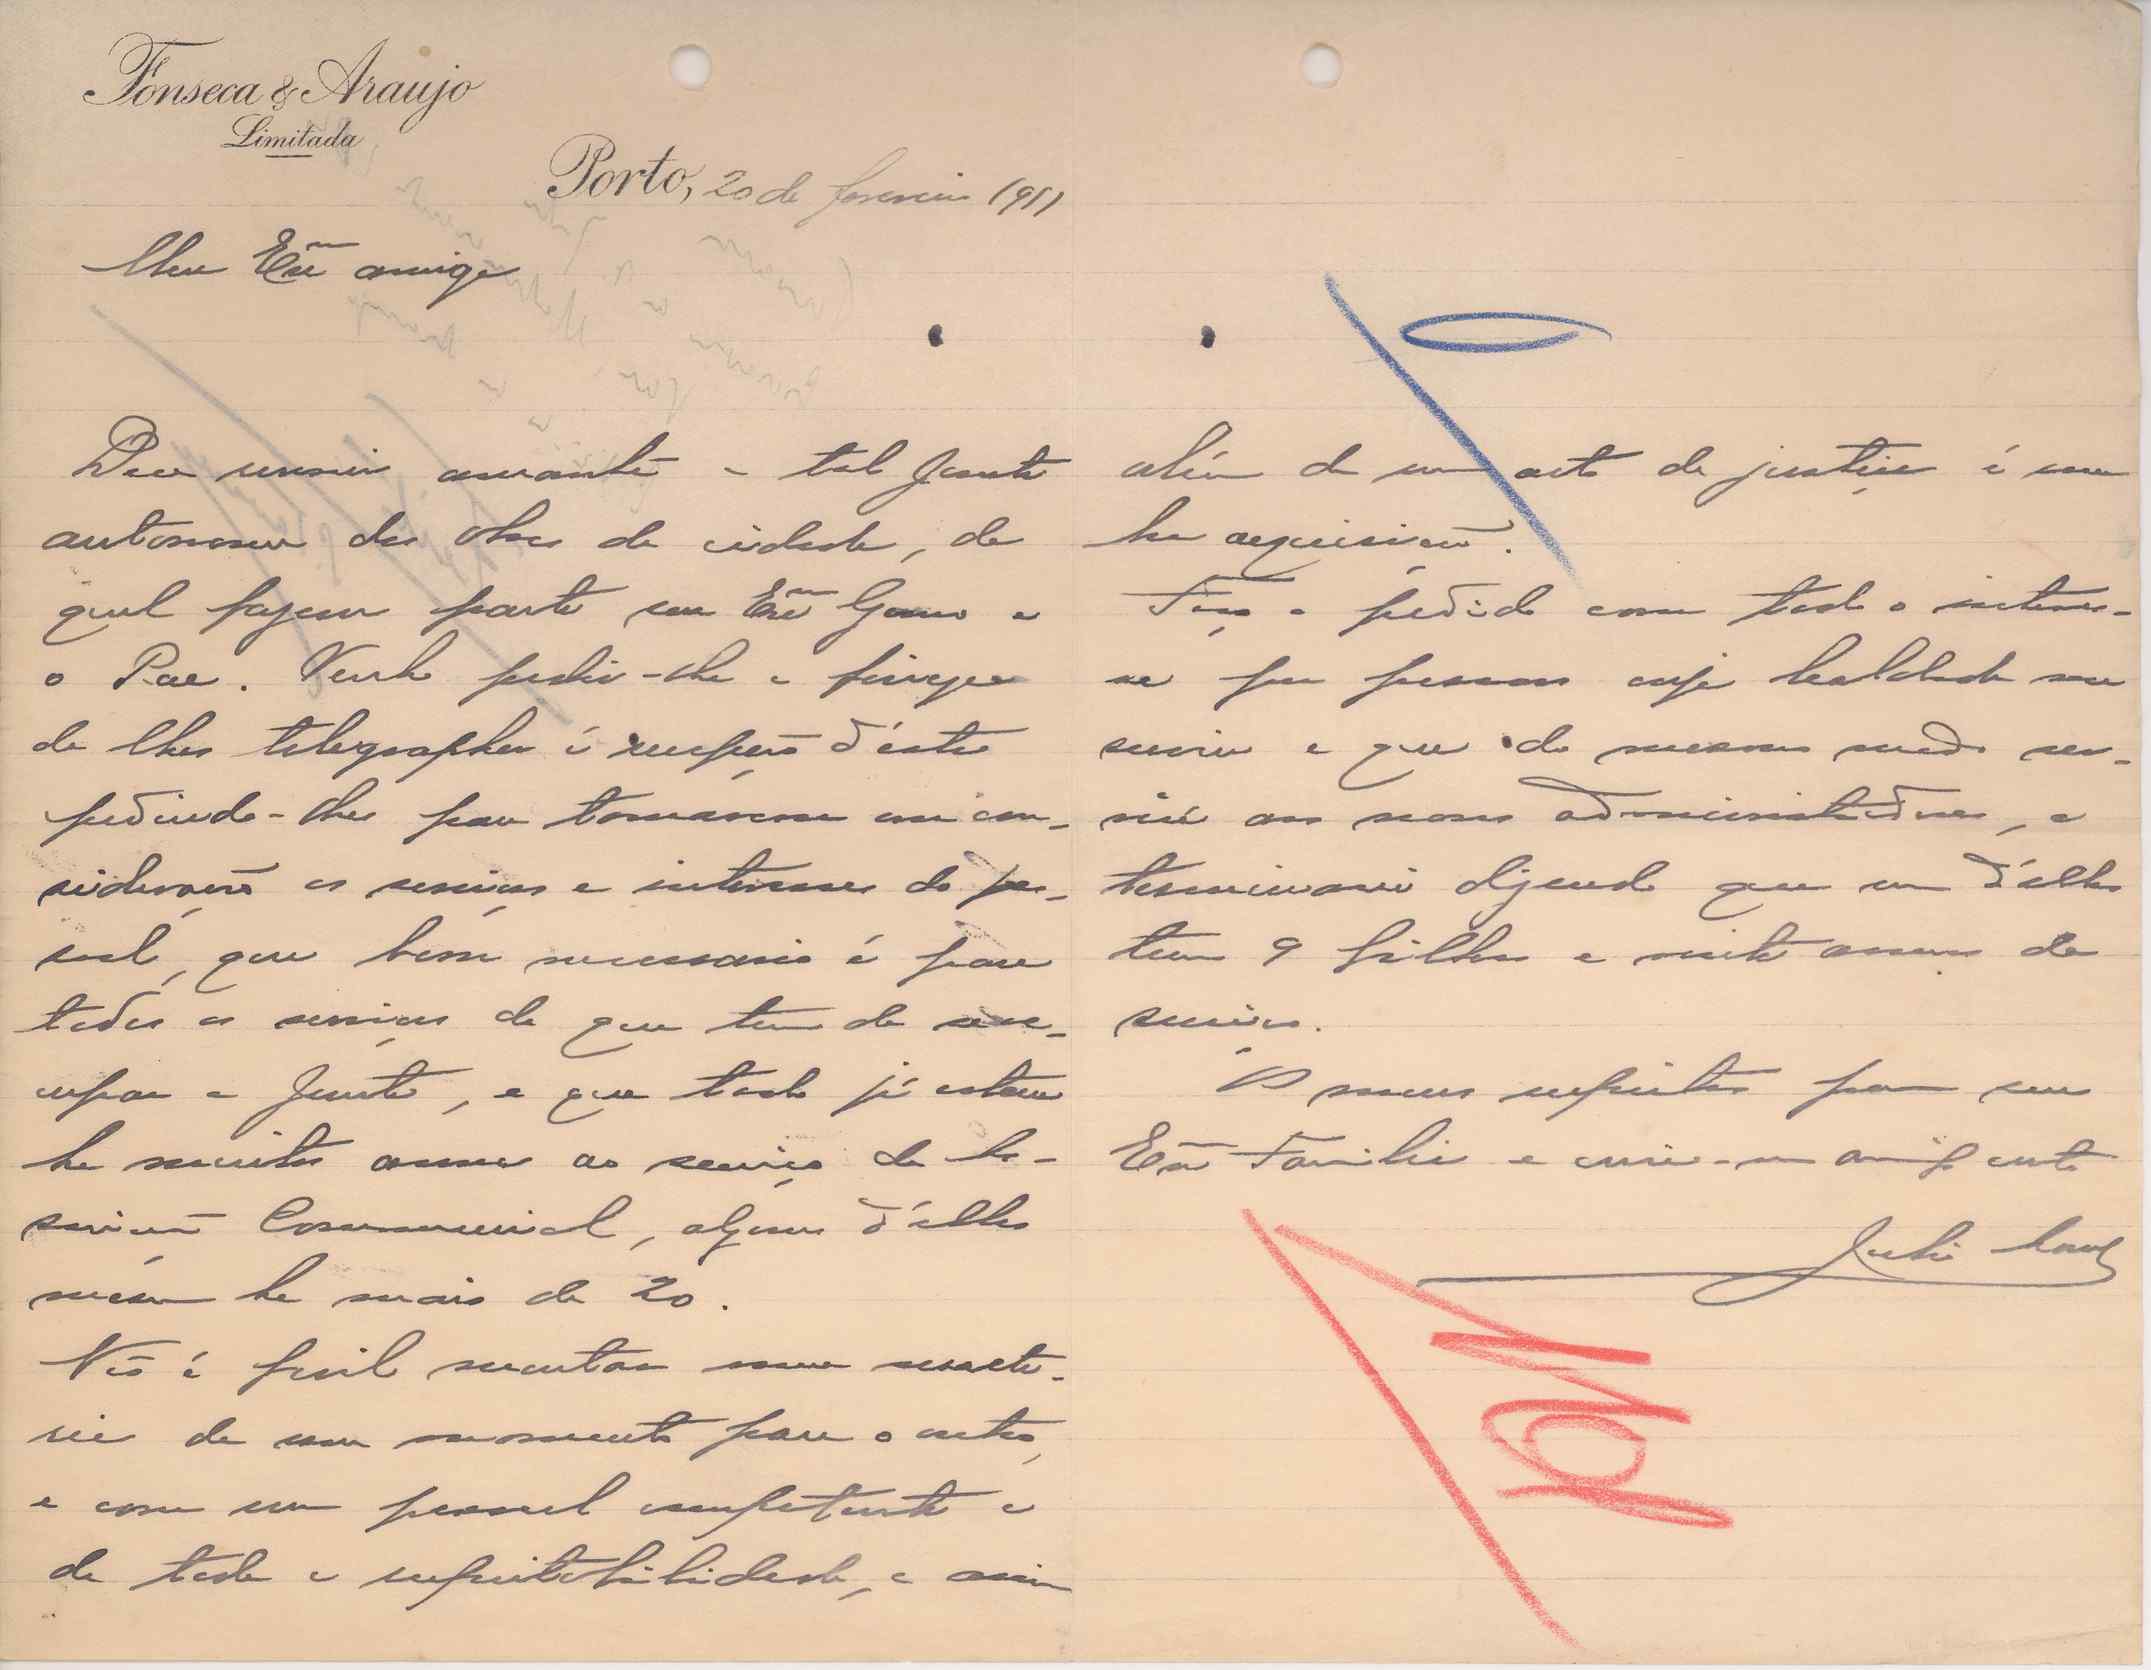 Fonseca & Araujo
Limitada
Porto, 20 de fevereiro 1911
Meu Exmo amigo
Deve reunir amanhã a tal Junta
autonoma das obras da cidade, da
qual fazem parte seu Exmo Genro e
o Pae. Venho pedir-lhe a fineza
de lhes telegraphar á recepção d'esta
pedindo-lhes para tomarem em con-
sideração os serviços e interesses do pes-
soal, que bem necessario é para
todos os serviços de que tem de se oc-
cupar a Junta, e que todo já estava
ha muitos annos ao serviço da As-
sociação Commercial, alguns d'elles
mesmo ha mais de 20.
Não é facil montar uma secreta-
ria de um momento para o outro,
e com um pessoal competente e
de toda a respeitabilidade, e assim
além de um acto de justiça é uma
bôa acquisição.
Faço o pedido com todo o interes-
se por pessoas cuja lealdade me
serviu e que do mesmo modo ser-
virá aos novos administradores, e
terminarei dizendo que um d'elles
tem 9 filhos e vinte annos de
serviço.
Os meus respeitos para sua
Exma Familia e creia-me amigo certo
Julio